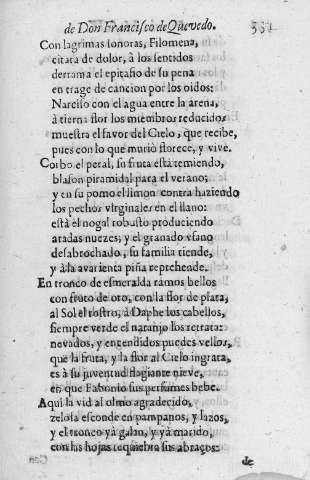 de Don Francisco de Quevedo. 331
Con lagrimas sonoras, Filomena,
citara de dolor, à los sentidos
derrama el epitafio de su pena
en trage de cancion por los oidos:
Narciso con el agua entre la arena,
à tierna flor los miembros reducidos
muestra el favor del Cielo, que recibe,
pues con lo que muriò florece, y vive.
Corbo el peral, su fruta està temiendo,
blason piramidal para el verano;
y en su pomo el limon contra haziendo
los pechos virginales en el llano:
està el nogal robusto produciendo
aradas nuezes; y el granado vfano
desabrochado, su familia tiende,
y à la avarienta piña reprehende.
En tronco de esmeralda ramos bellos
con fruto de oro, con la flor de plata,
al Sol el rostro, à Daphe los cabellos,
siempre verde el naranjo los retrata:
nevados, y encendidos puedes vellos,
que la fruta, y la flor al Cielo ingrata,
es à su juventud flagiante nieve,
en que Fabonio sus perfumes bebe.
Aqui la vid al olmo agradecido,
zelosa esconde en pampanos, y lazos,
y el tronco yà galan, y yà marido,
con las hojas requiebra sus abraços:
de